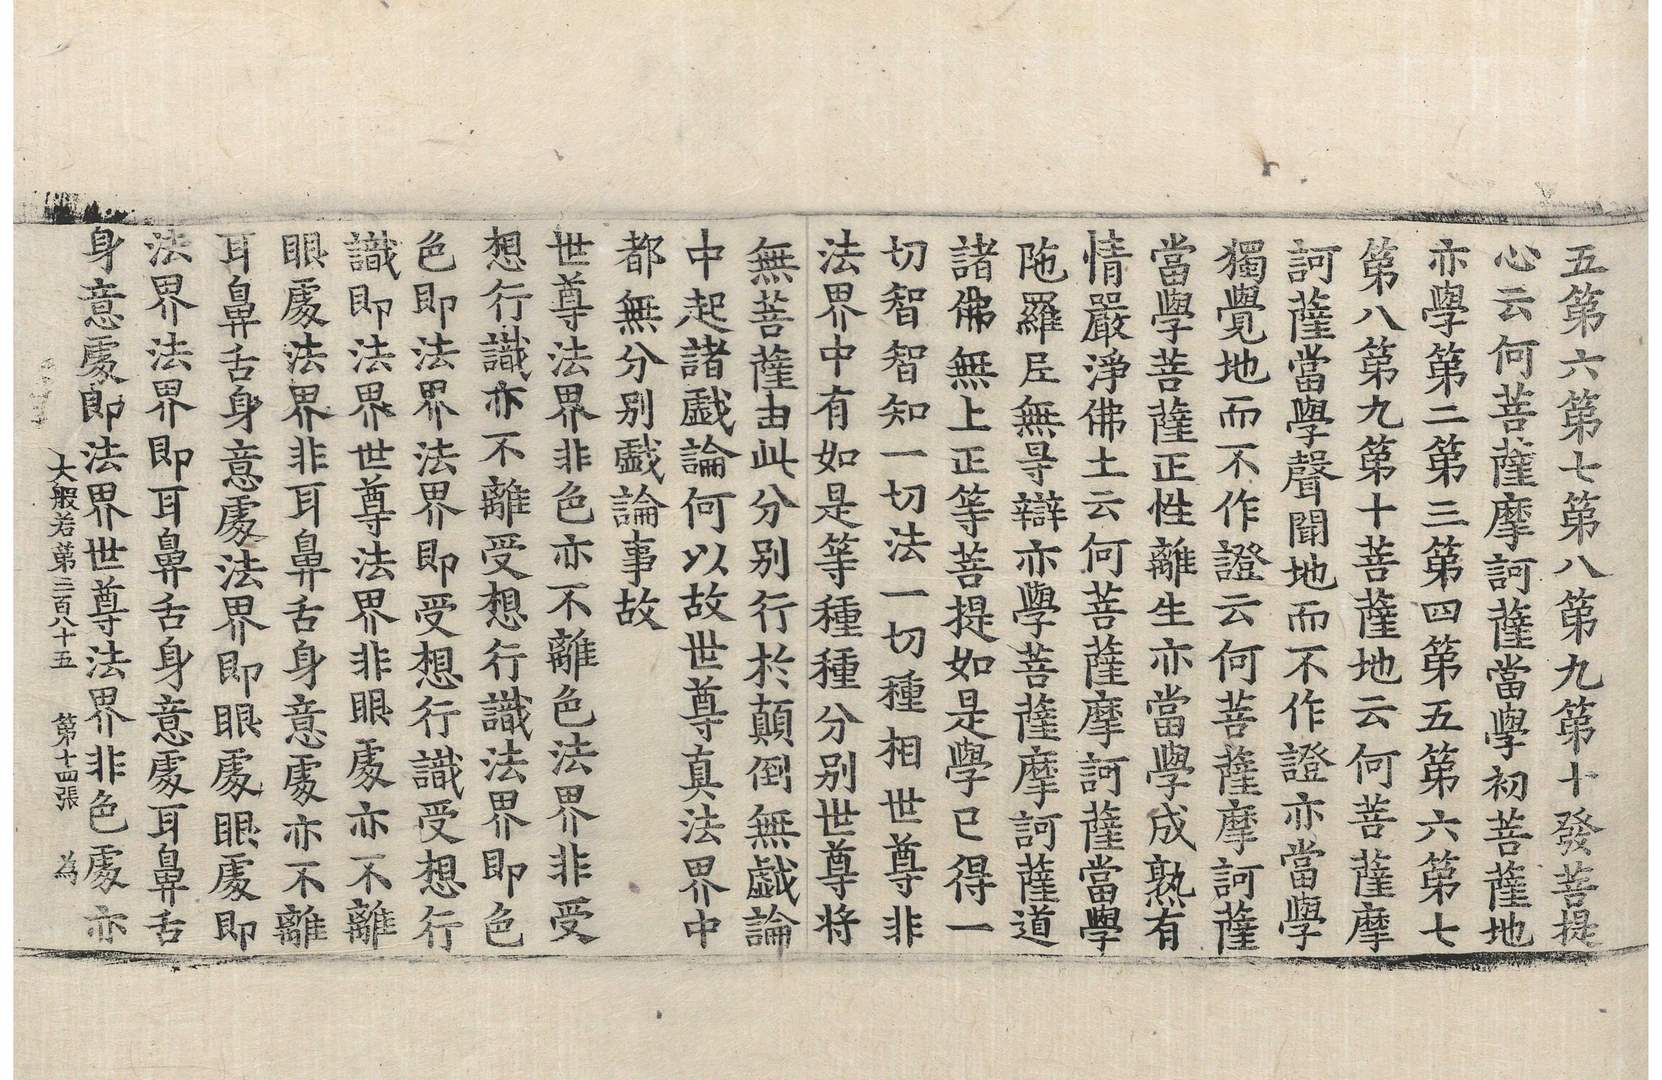 五第六第七第八第九第十發菩提
心云何菩薩摩訶薩當學初菩薩地
亦學第二第三第四第五第六第七
第八第九第十菩薩地云何菩薩摩
訶薩當學聲聞地而不作證亦當學
獨覺地而不作證云何菩薩摩訶薩
當學菩薩正性離生亦當學成熟有
情嚴淨佛土云何菩薩摩訶薩當學
陁羅尼無㝵辯亦學菩薩摩訶薩道
諸佛無上正等菩提如是學已得一
切智智知一切法一切種相世尊非
法界中有如是等種種分別世尊将
無菩薩由此分別行於顛倒無戲論
中起諸戲論何以故世尊真法界中
都無分別戲論事故
世尊法界非色亦不離色法界非受
想行識亦不離受想行識法界即色
色即法界法界即受想行識受想行
識即法界世尊法界非眼處亦不離
眼處法界非耳鼻舌身意處亦不離
耳鼻舌身意處法界即眼處眼處即
法界法界即耳鼻舌身意處耳鼻舌
身意處即法界世尊法界非色處亦
大般若第三百八十五 第十四張 為